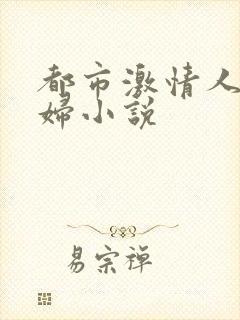 都市激情人
婦小說
易宗禅